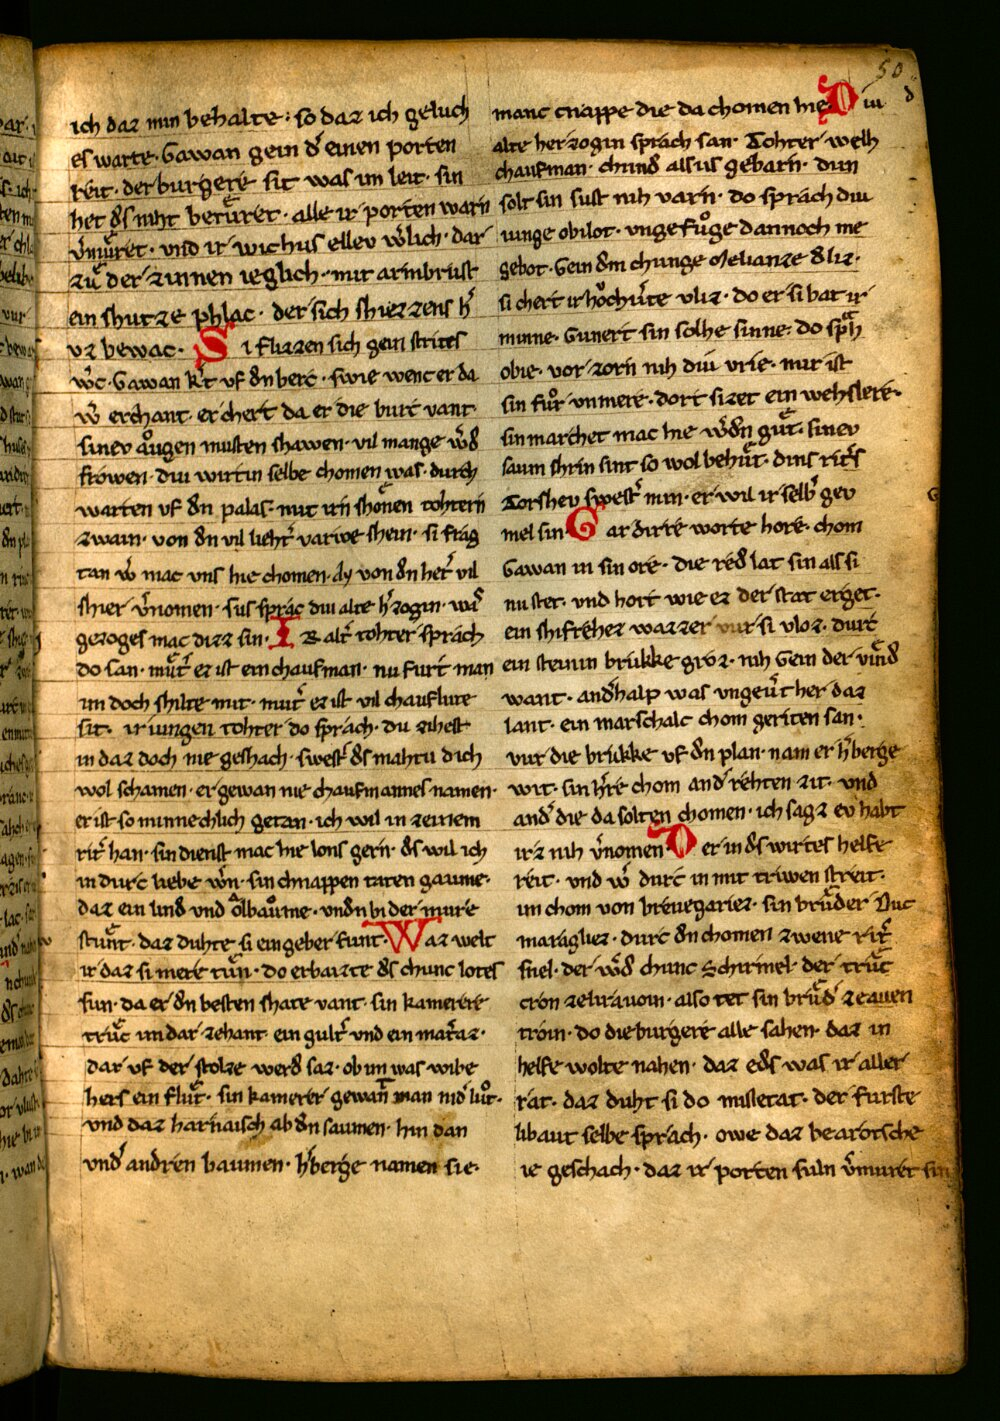 50
ich daz min behalte · so daz ich geluch
es warte · Gawan gein d͛ einen porten
reit · der burgere sit was im leit · sin
het d͛s niht betůret · alle ir porten warn
v͛můret · vnd ir wichus ellev w͛lich · dar
zů der zinnen ieglich · mit armbrust
ein shutze phlac · der sich shiezzens h͛
vz bewac · Si flizzen sich gein strites
w͛c · Gawan k͛t vf d͛n berc · swie wenc er da
w͛ erchant · er chert da er die burc vant ·
sinev ǒugen musten shawen · vil mange w͛d͛
frǒwen · diu wirtin selbe chomen was · durch
warten vf d͛n palas · mit irn shonen tohtern
zwain · von d͛n vil lieht͛ varwe shein · si frag
tan w͛ mac vns hie chomen · Ay von d͛n her͛ vil
shier v͛nomen · sus sprac diu alte h͛zogin · waͤ
gezoges mac dizz sin · Ir alt͛ tohter sprach
do san · můt͛ ez ist ein chaufman · nu furt man
im doch shilte mit · můt͛ ez ist vil chauflute
sit · ir iungen tohter do sprach · du zihest
in daz doch nie geshach · swest͛ d͛s mahtu dich
wol schamen · er gewan nie chaufmannes namen ·
er ist so minnechlich getan · ich wil in zeinem
rit͛ han · sin dienst mac hie lons gern · d͛s wil ich
in durc liebe w͛n · sin chnappen taten gaume ·
daz ein lind͛ und ǒlbaǒme · vnd͛n bi der mure
stůnt · daz duhte si ein geber funt · Waz welt
ir daz si mere tůn · do erbaizte d͛s chunc lotes
sun · da er d͛n besten shate vant · sin kamerere
trůc im dar zehant · ein gult͛ vnd ein mat͛az ·
dar vf der stolze werd͛ saz · ob im was wibe
hers ein flůt · sin kamerer gewan͛ man nid͛ lůt ·
vnd daz harnaisch ab d͛n saumen · hin dan
vnd͛ andren baumen · h͛berge namen sie ·
manc cnappe die da chomen hie Diu
alte herzogin sprach san · Tohter welh
chaufman · chund͛ alsus gebarn · dun
solt sin sust nih varn · do sprach diu
iunge obilot · vngefůge dannoch me
gebot · Gein d͛m chunge Melianze d͛ liz ·
si chert ir hǒchv͛te vliz · do er si bat ir
minne · Gunert sin solhe sinne · do spͣh
obie · vor zorn nih diu vrie · mir ist
sin fůr vnmere · dort sizet ein wehslere ·
sin marchet mac hie w͛d͛n gůt · sinev
saum shrin sint so wol behůt · dins rit͛s
Torshev swest͛ min · er wil ir selb͛ gev
mel sin · Gar dirre worte hore · chom
Gawan in sin ore · die red͛ lat sin als si
nu stet · vnd hort wie ez der stat erget ·
ein shifrehez wazzer vur si vloz · durc
ein steinin brukke groz · nih Gein der vind͛
want · and͛halp was vngeu͛t her daz
lant · ein marschalc chom geriten san ·
vur die brukke vf d͛n plan · nam er h͛berge
wit · sin h͛re chom and͛ rehten zit · vnd
and͛ die da solten chomen · ich sagz ev habt
irz nih v͛nomen Der in d͛s wirtes helfe
reit · vnd w͛ durc in mit triwen streit ·
im chom von brevegariez · sin brůder Duc
maragliez · durc d͛n chomen zwene rit͛
snel · der w͛d͛ chunc Schirniel · der trůc
cron zelirǎuoin · also tet sin brůd͛ zeauen
troin · do die burgere alle sahen · daz in
helfe wolte nahen · daz ed͛s was ir aller
rat · daz duht si do missetat · der furste
libaut selbe sprach · owe daz bearotsche
ie geschach · daz ir porten suln v͛muret sin